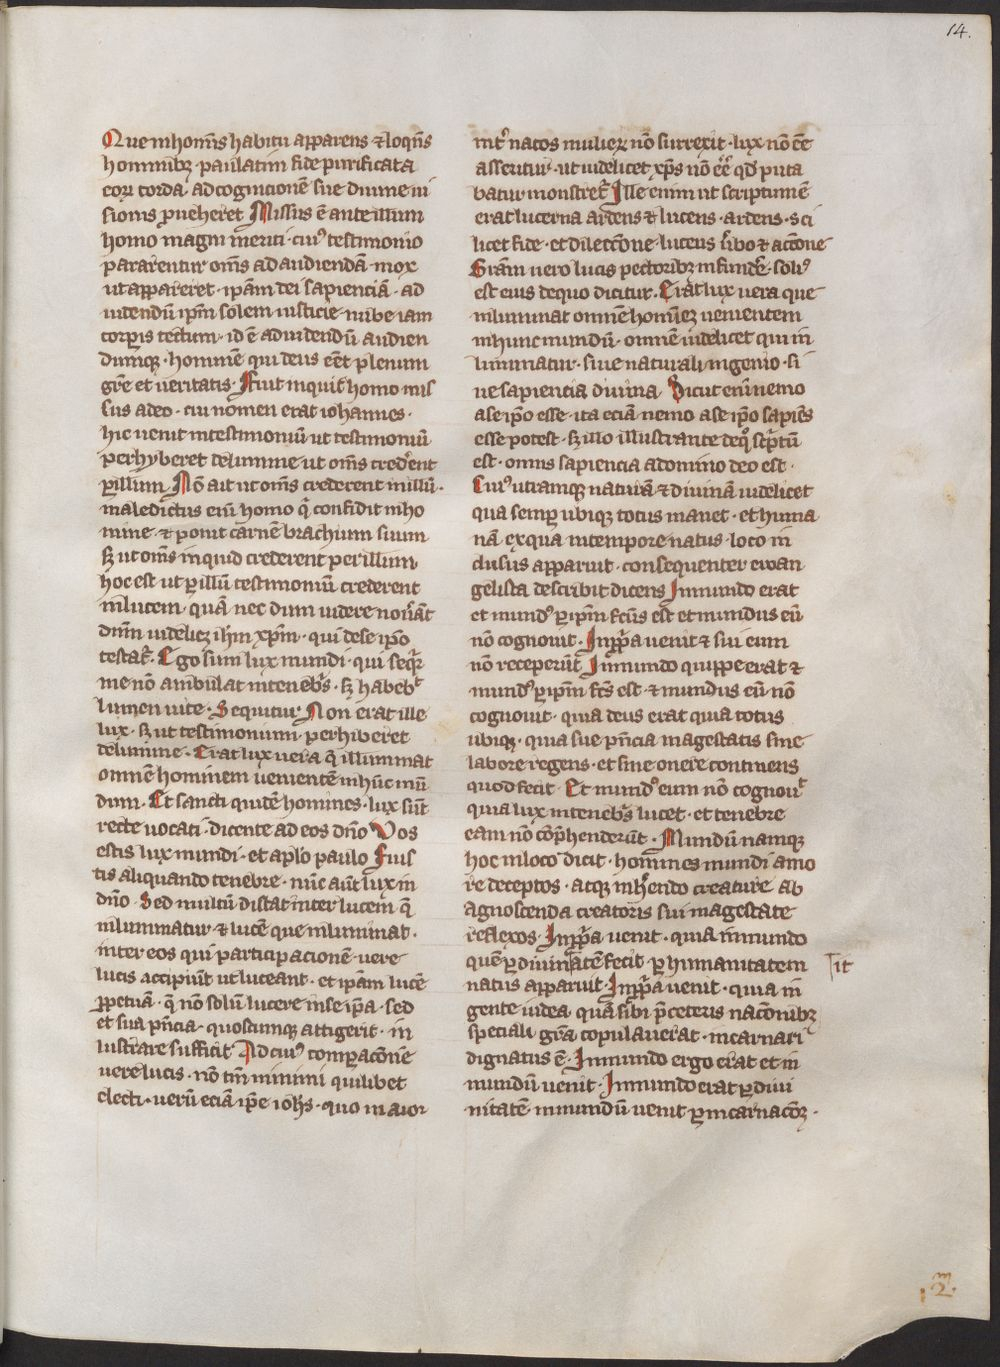 14.
Que inhoīs habitu apparens ⁊ loqn̄s
hominibꝫ paulatim fide purificata
eoꝝ corda ad cognitionē sue diuine ui
sionis ꝓueheret Missus ē ante illum
homo magni meriti · cuiꝰ testimonio
pararentur om̄s ad audiendā mox
ut appareret · ip̄am dei sapienciā · ad
uidendū ip̄m solem iusticie nube iam
corpis tectum · id ē ad uidendū audien
dumqꝫ · hominē qui deus eēt plenum
gr̄e et ueritatis · Fuit inquit homo mis
sus a deo · cui nomen erat iohannes ·
hic uenit intestimoniū ut testimoniū
perhyberet delumine ut om̄s crederent
ꝑ illum Nō ait ut om̄s crederent in illū ·
maledictus eni homo qͥ confidit in ho
mine · ⁊ ponit carnē brachium suum
sꝫ ut om̄s inquid crederent per illum
hoc est ut ꝑ illū testimoniū crederent
in lucem · quā nec dum uidere nouerāt
dn̄m uidelicꝫ ihm xp̄m · qui de se ip̄o
testat̄ · Ego sum lux mundi · qui seqr̄
me nō ambulat intenebͥs · sꝫ habebᷓ
lumen uite · Sequitur Non erat ille
lux · sꝫ ut testimonium perhiberet
delumine · Erat lux uera q̄ illuminat
omnē hominem uenientē in hūc mū
dum · Et sancti quidē homines · lux sūt
recte uocati · dicente ad eos dn̄o Vos
estis lux mundi · et aplo paulo Fuis
tis aliquando tenebre · nūc aūt lux in
dn̄o · Sed multū distat inter lucem q̄
inluminatur · ⁊ lucē que inluminat ·
inter eos qui participacionē uere
lucis accipiūt ut luceant · et ip̄am lucē
ꝑpetuā · q̄ nō solū lucere in se ip̄a · sed
et sua pn̄cia · quoscumqꝫ attigerit · in
lustrare sufficit Ad cuiꝰ compacōnē
uere lucis · nō tm̄ minimi quilibet
electi · uerū eciā ip̄e ioh̄s · quo maior
intͬ natos mulieꝝ nō surrexit · lux nō eē
asseritur · ut uidelicet xp̄s nō eē qd̄ puta
batur monstret̄ Ille enim ut scriptum ē
erat lucerna ardens ⁊ lucens · ardens · sci
licet fide · et dilectōne · lucens ūbo ⁊ actōne
Gr̄am uero lucis pectoribꝫ infundē · soliꝰ
est eius de quo dicitur · Erat lux uera que
inluminat omnē hominē uenientem
in hunc mundū · omnē uidelicet qui in
luminatur · siue naturali ingenio · si
ue sapiencia diuina Sicut enī nemo
a se ip̄o esse · ita eciā nemo a se ip̄o sapiēs
esse potest · sꝫ illo illustrante de qͦ scͥptū
est · omnis sapiencia a domino deo est ·
Cuiꝰ utramqꝫ naturā ⁊ diuinā uidelicet
qua semꝑ ubiqꝫ totus manet · et huma
nā ex qua in tempore natus · loco in
clusus apparuit · consequenter ewan
gelista describit dicens In mundo erat
et mundꝰ ꝑ ip̄m fcūs est et mundus eū
nō cognouit · In ꝓp̄a uenit ⁊ sui eum
nō receperūt In mundo quippe erat ⁊
mundꝰ ꝑ ip̄m fc̄s est · ⁊ mundus eū nō
cognouit · quia deus erat quia totus
ubiqꝫ · quia sue pn̄cia magestatis sine
labore regens · et sine onere continens
quod fecit · Et mundꝰ eum nō cognouᷓ
quia lux intenebͥs lucet · et tenebre
eam nō cōp̄henderūt · Mundū namqꝫ
hoc in loco dicit · homines mundi amo
re deceptos · atqꝫ inh̄endo creature ab
agnoscenda creatoris sui magestate
reflexos · In ꝓp̄a uenit · quia in mundo
quē ꝑ diuinatē fecit ꝑ humanitatem
it
natus apparuit · In ꝓp̄a uenit · quia in
gente iudea quā sibi p̄ceteris nacōnibꝫ
speciali gr̄a copulauerat · incarnari
dignatus ē · In mundo ergo erat et in
mundū uenit · In mundo erat ꝑ diui
nitatē in mundū uenit ꝑ incarnacōꝫ ·